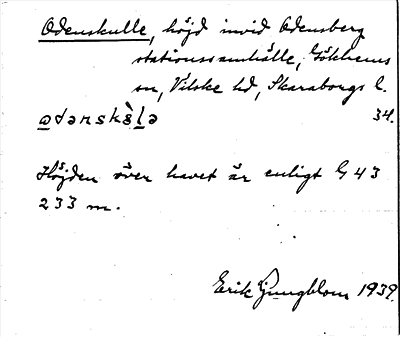 Odenskulle, höjd invid Odensberg
stationssamhälle, Gökhems
sn, Vilske hd, Skaraborgs l.
odənskə̀lə 34.
Höjden över havet är enligt G 43
233 m.
Erik Ljungblom 1939.